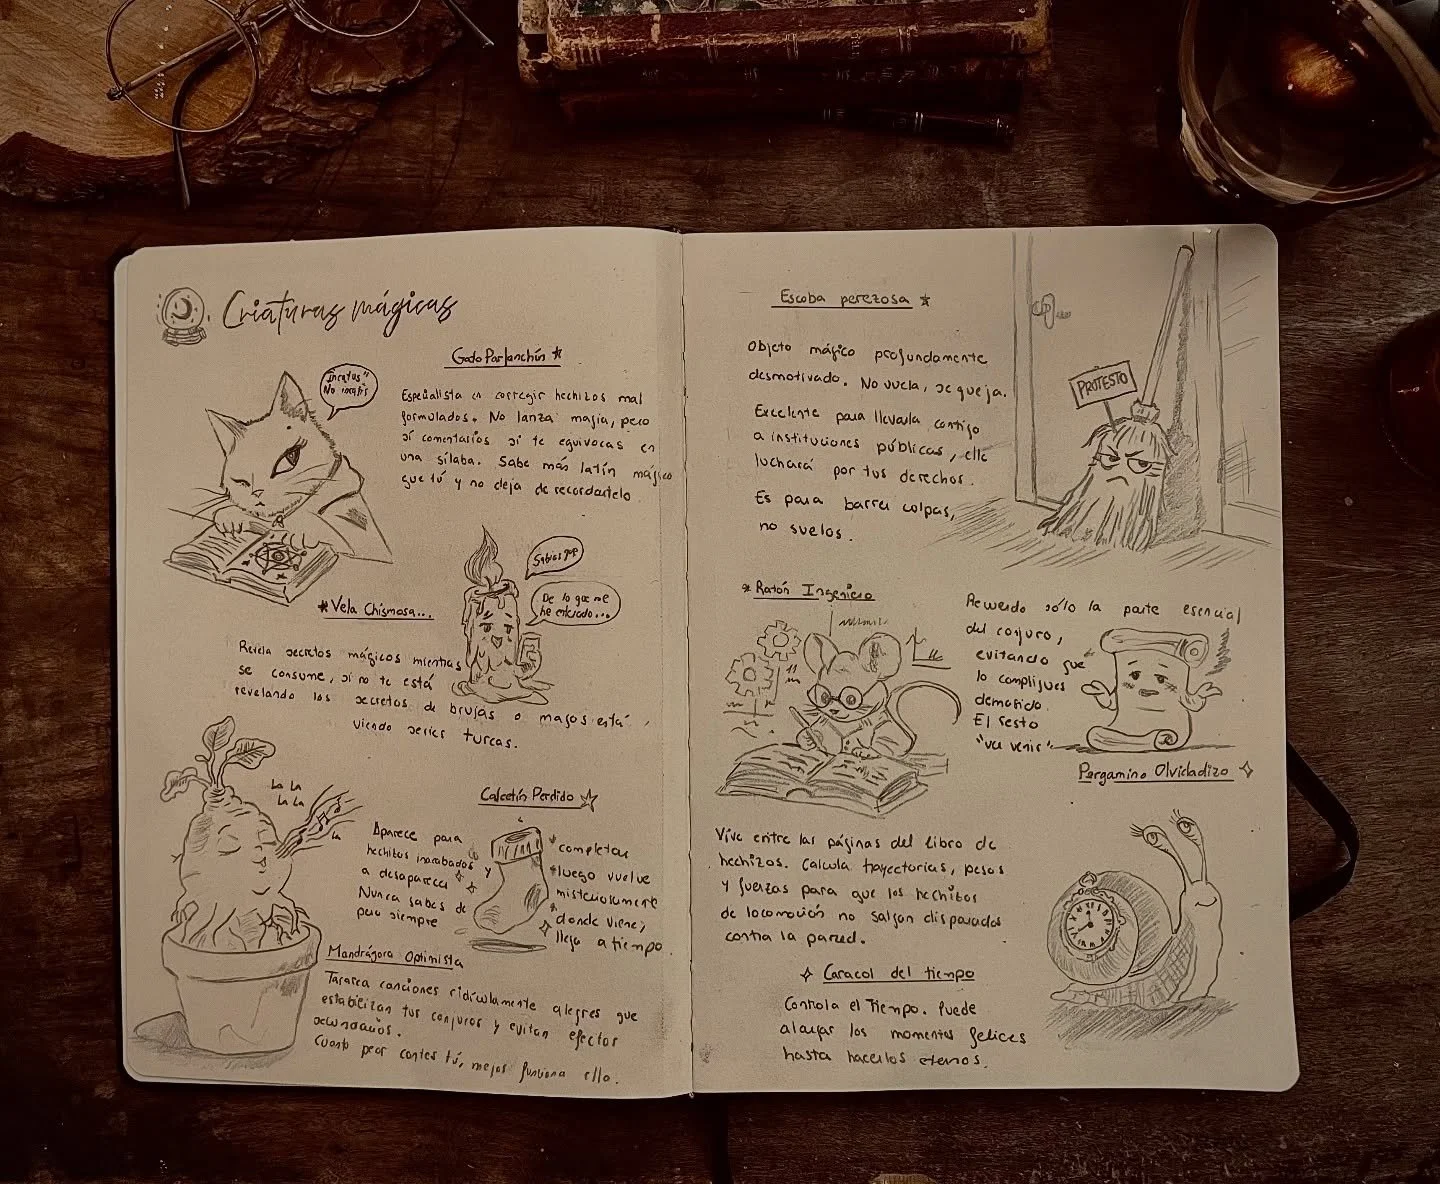 Criaturas mágicas
Gato Parlanchín
"Incatus"
No incatis
Especialista en corregir hechizos mal
formulados. No lanza magia, pero
sí comentarios si te equivocas en
una sílaba. Sabe más latín mágico
que tú y no deja de recordártelo.
Vela Chismosa...
Sabías que
De lo que me
he enterado...
Revela secretos mágicos mientras
se consume, si no te está
revelando los secretos de brujas o magos está
viendo series turcas.
La La
La La
La
Calcetín Perdido
Aparece para
hechizos inacabados y
a desaparecer
Nunca sabes de
pero siempre
completar
luego vuelve
misteriosamente
donde viene,
llega a tiempo
Mandrágora Optimista
Tararea canciones ridículamente alegres que
estabilizan tus conjuros y evitan efectos
secundarios.
Cuanto peor cantes tú, mejor funciona ella.
Escoba perezosa
Objeto mágico profundamente
desmotivado. No vuela, se queja.
Excelente para llevarla contigo
a instituciones públicas, ella
luchará por tus derechos.
Es para barrer culpas,
no suelos.
PROTESTO
Ratón Ingeniero
Vive entre las páginas del libro de
hechizos. Calcula trayectorias, pesos
y fuerzas para que los hechizos
de locomoción no salgan disparados
contra la pared.
Recuerda sólo la parte esencial
del conjuro,
evitando que
lo compliques
demasiado.
El resto
"ya venir"
Pergamino Olvidadizo
Caracol del tiempo
Controla el Tiempo. Puede
alargar los momentos felices
hasta hacerlos eternos.